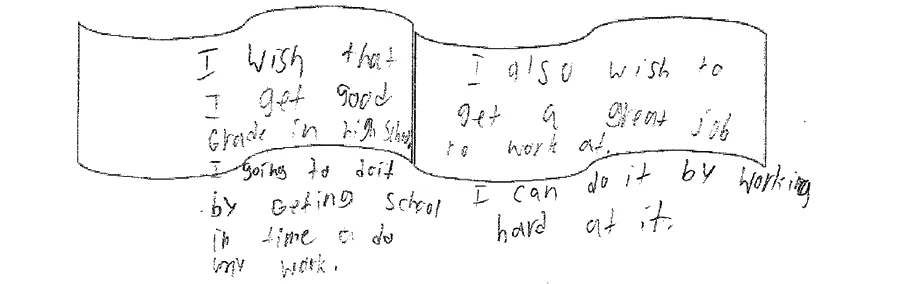 I wish that
I get good
Grade in high School
I going to doit
by Geting School
in time a do
my work.
I also wish to
get a great job
to work at.
I can do it by working
hard at it.